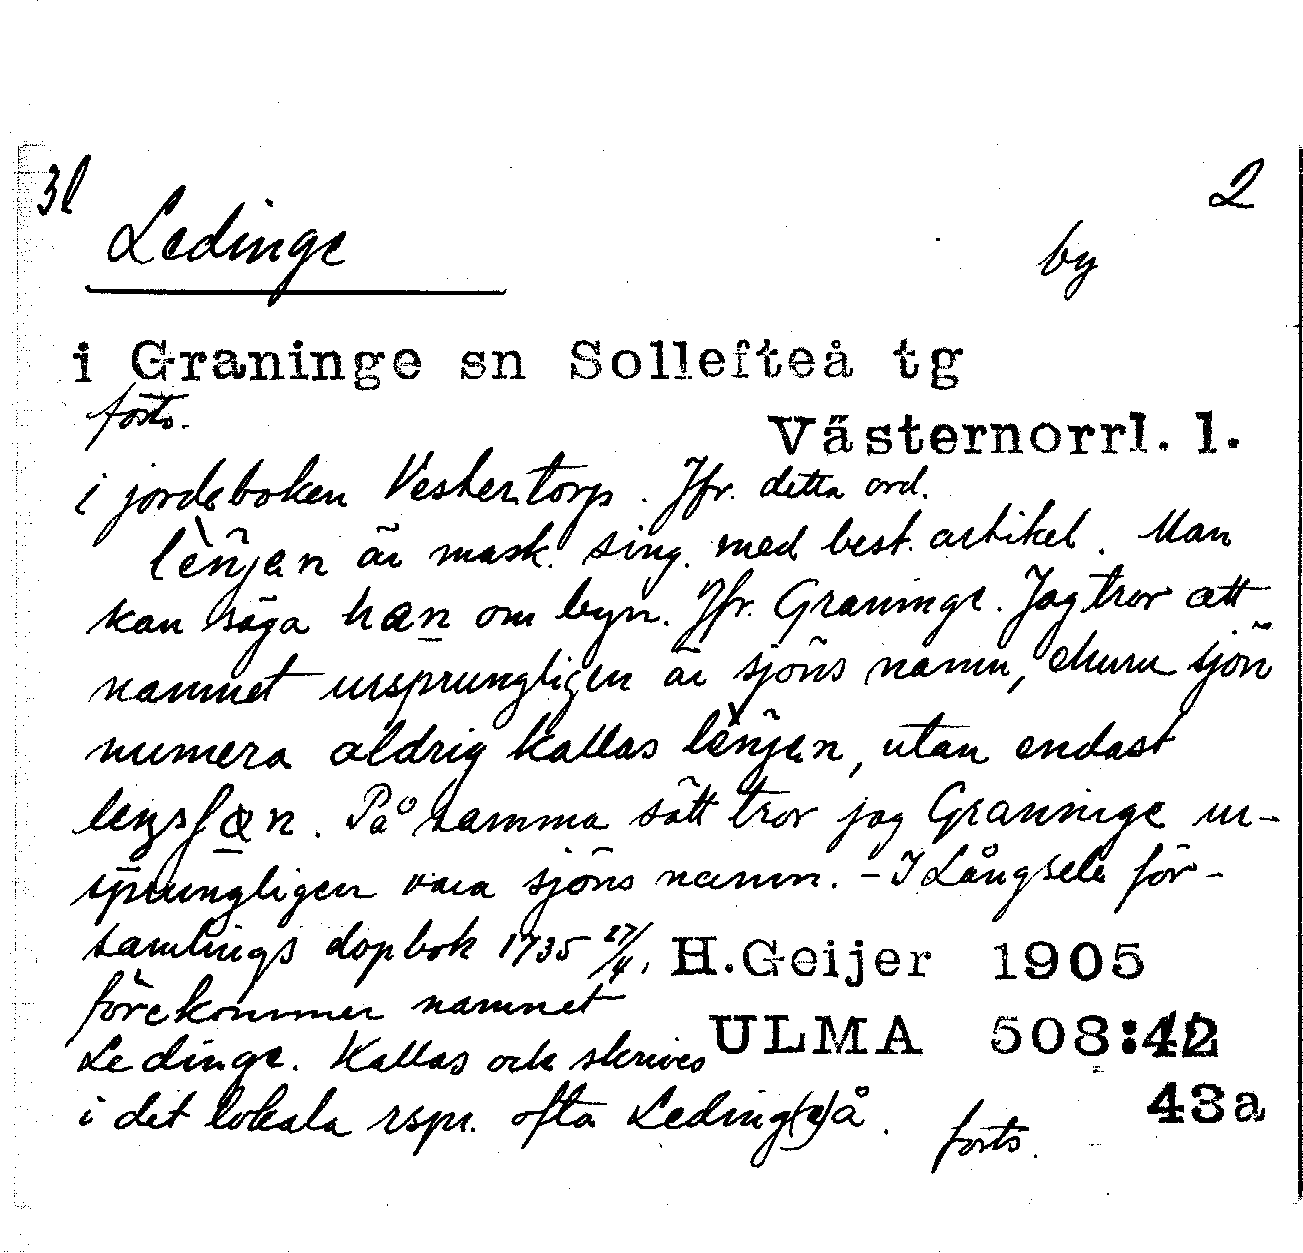 3l
2
Ledinge
by
i Graninge sn Sollefteå tg
forts.
Västernorrl. l.
i jordeboken Vestertorp. Jfr. detta ord.
är mask. sing. med best. artikel. Man
kan säga han om byn. Jfr. Graninge. Jag tror att
namnet ursprungligen är sjöns namn, ehuru sjön
numera aldrig kallas utan endast
På samma sätt tror jag Graninge ur-
sprungligen vara sjöns namn. - I Långsele för-
samlings dopbok 1735 27/4,
förekommer namnet
Ledinge. Kallas och skrives
i det lokala rspr. ofta Leding(e)å.
H.Geijer 1905
ULMA 508:42
43a
forts.